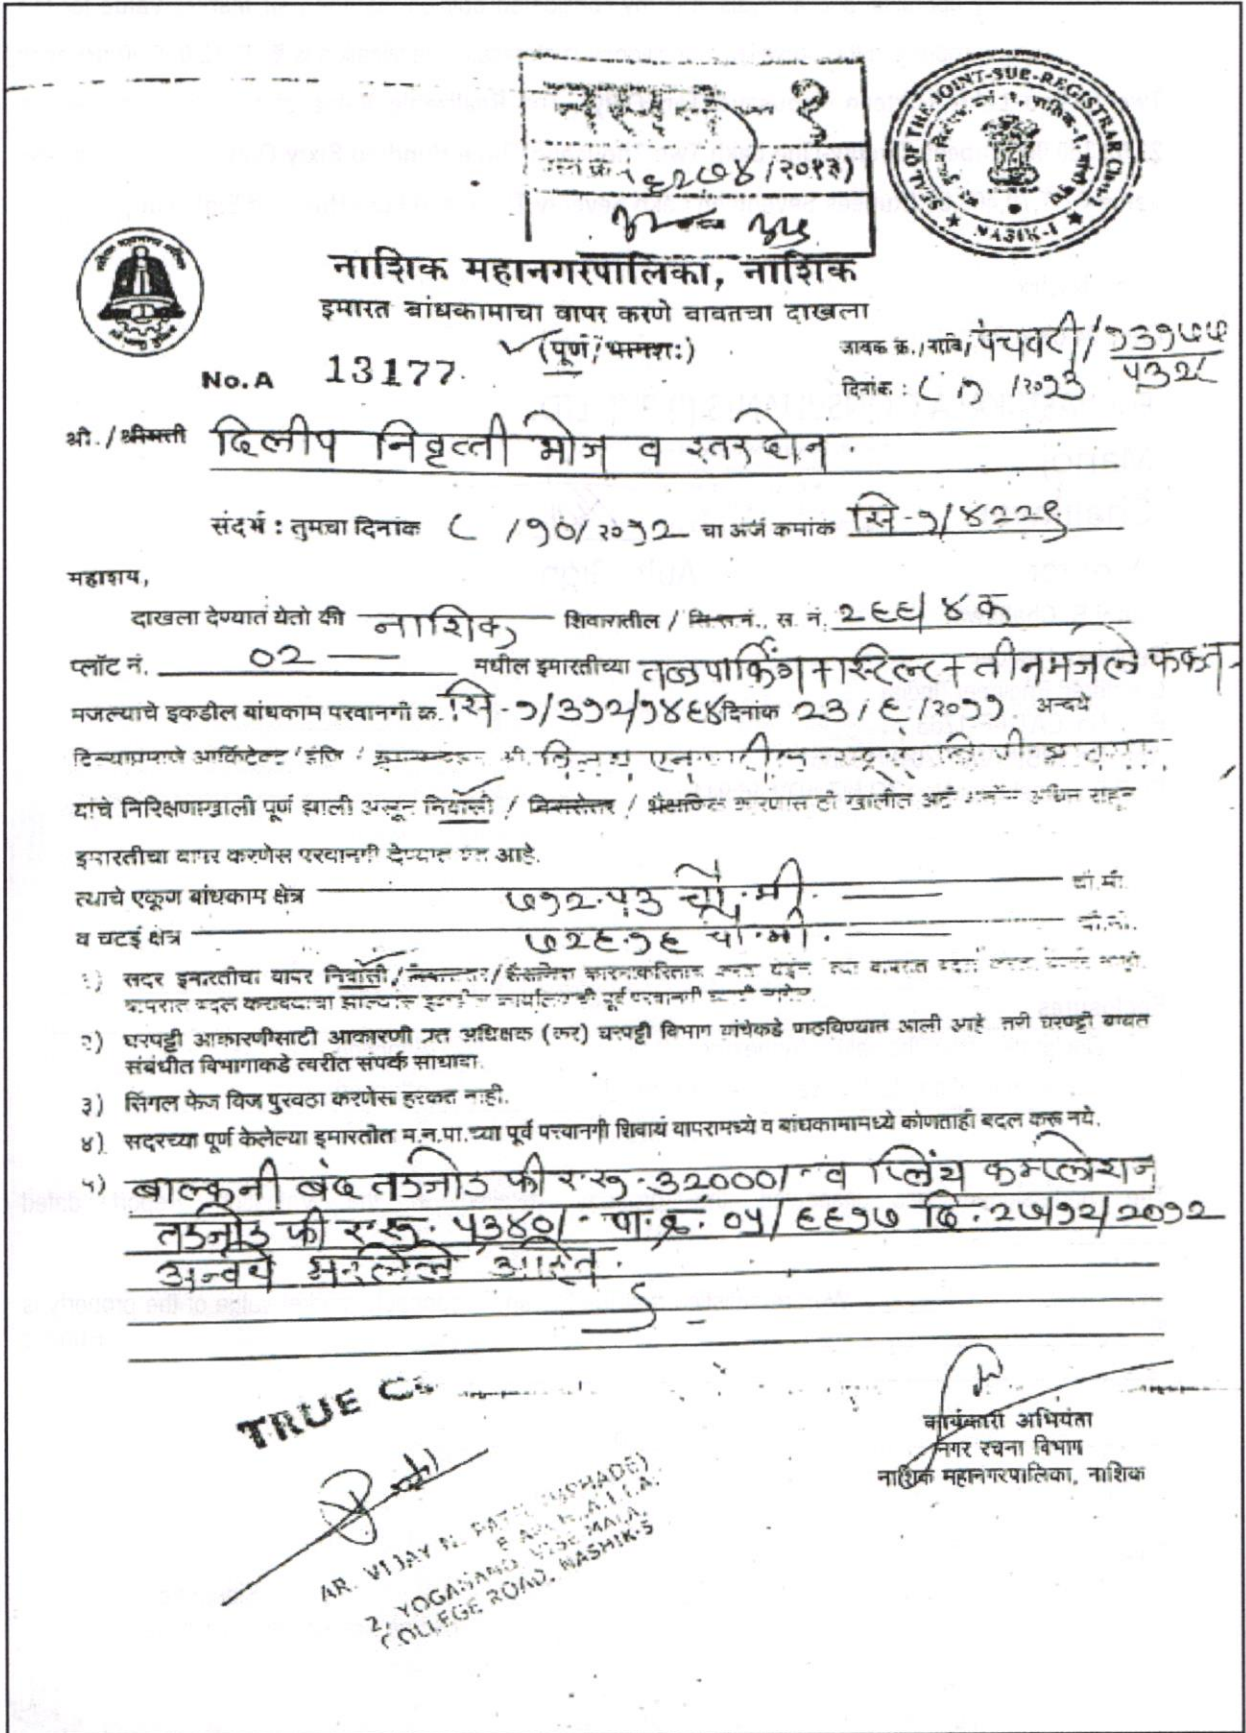 नसन १
दस्त क्र. (६२७४/२०१३)
SEAL OF THE JOINT-SUB-REGISTRAR
NASIK-I
नाशिक महानगरपालिका, नाशिक
इमारत बांधकामाचा वापर करणे बाबतचा दाखला
(पूर्ण/भागशः)
No.A 13177
जावक क्र./नवि/पंचवटी/
दिनांक : ८/१/२०१३
श्री./श्रीमती दिलीप निवृत्ती भोज व इतर दोन.
संदर्भ : तुमचा दिनांक ८/१०/२०१२ चा अर्ज क्रमांक सि-१/४२२९
महाशय,
दाखला देण्यात येतो की नाशिक शिवारातील / सि.स.नं., स. नं. २६६/४क
प्लॉट नं. ०२ मधील इमारतीच्या तळपार्किंग+स्टिल्ट+तीनमजले फक्त
मजल्याचे इकडील बांधकाम परवानगी क्र. सि-१/३१२/१४६४ दिनांक २३/६/२०११ अन्वये
दिल्याप्रमाणे आर्किटेक्ट/इंजि /
यांचे निरिक्षणाखाली पूर्ण झाली असून निवासी / निवासेतर / शैक्षणिक कारणास
इमारतीचा वापर करणेस परवानगी देण्यात येत आहे.
त्याचे एकूण बांधकाम क्षेत्र ७१२.५३ चौ.मी. चौ.मी.
व चटई क्षेत्र ७२६.१६ चौ.मी. चौ.मी.
१) सदर इमारतीचा वापर निवासी/निवासेतर/शैक्षणिक कारणाकरिताच करता येईल. त्या वापरात बदल
वापरात बदल करावयाचा झाल्यास पूर्व परवानगी
२) घरपट्टी आकारणीसाठी आकारणी प्रत अधिक्षक (कर) घरपट्टी विभाग यांचेकडे पाठविण्यात आली आहे तरी घरपट्टी बाबत
संबंधीत विभागाकडे त्वरीत संपर्क साधावा.
३) सिंगल फेज विज पुरवठा करणेस हरकत नाही.
४) सदरच्या पूर्ण केलेल्या इमारतीत म.न.पा.च्या पूर्व परवानगी शिवाय वापरामध्ये व बांधकामामध्ये कोणताही बदल करू नये.
५) बाल्कनी बंद तडजोड फी र.रू. ३२०००/- व प्लिंथ कम्प्लेशन
तडजोड फी र.रू. ५३४०/- पा.क्र. ०५/६६१७ दि. २७/१२/२०१२
अन्वये भरलेले आहेत.
TRUE C
कार्यकारी अभियंता
नगर रचना विभाग
नाशिक महानगरपालिका, नाशिक
AR. VIJAY N.
2, YOGANAND, VISE MALA,
COLLEGE ROAD, NASHIK-5